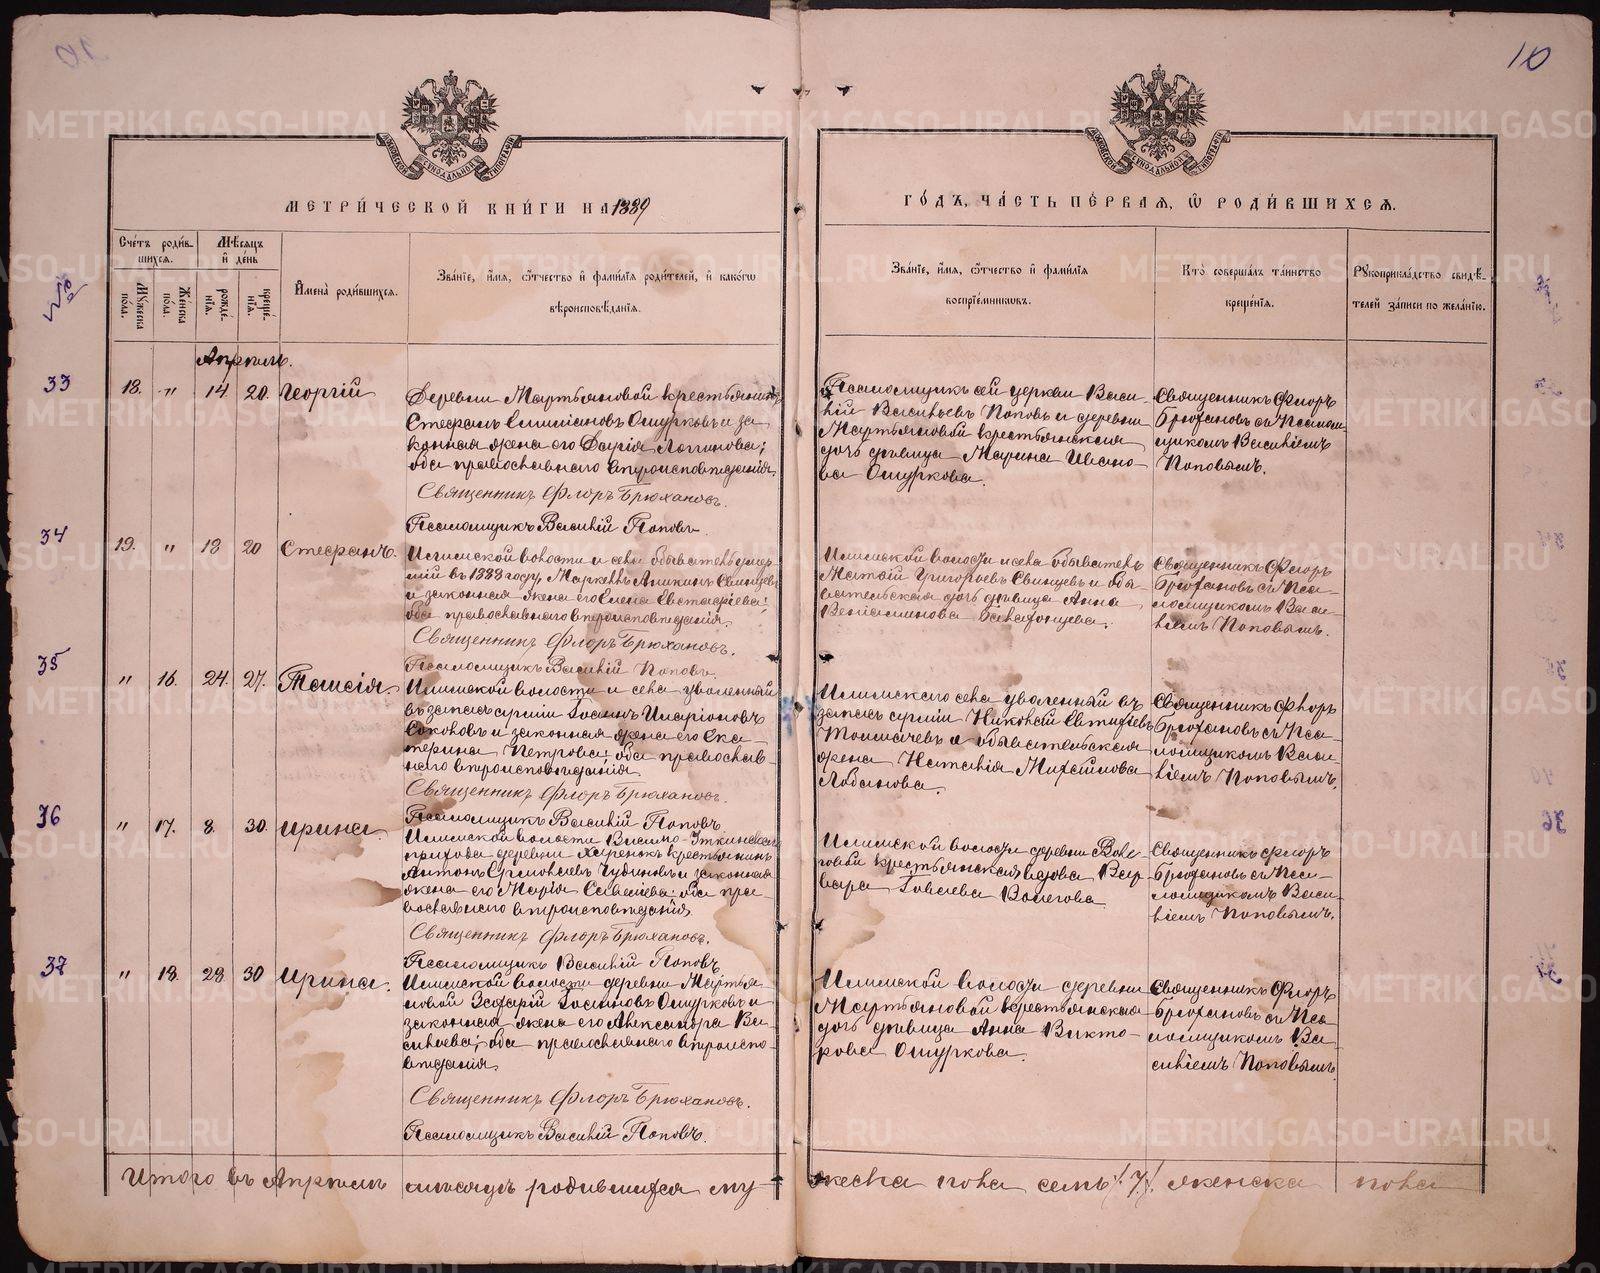 10
МЕТРИ́ЧЕСКОЙ КНИ́ГИ НА 1889
ГО́ДЪ, ЧА́СТЬ ПЕ́РВАЯ, Ѡ РОДИ́ВШИХСЯ.
Сче́тъ роди́в-
шихся.
Мѣ́сяцъ
и҆ де́нь
Му́жеска
по́ла.
Же́нска
по́ла.
рожде́-
нїя.
креще́-
нїя.
И҆мена̀ роди́вшихся.
Зва́нїе, и҆́мя, ѻ҆́тчество и҆ фами́лїя роди́телей, и҆ како́гѡ
вѣроисповѣ́данїя.
Зва́нїе, и҆́мя, ѻ҆́тчество и҆ фами́лїя
воспрїе́мниковъ.
Кто̀ соверша́лъ та́инство
креще́нїя.
Рꙋкоприкла́дство свидѣ́-
телей за́писи по жела́нїю.
Апрѣль.
33
18. " 14 20. Георгій
Деревни Мартьяновой крестьянинъ
Стефанъ Симіановъ Ошурковъ и за
конная жена его Дарія Логгинова;
оба православнаго вѣроисповѣданія.
Священникъ Флоръ Брюхановъ.
Псаломщикъ Василій Поповъ.
Псаломщикъ сей церкви Васи-
лій Васильевъ Поповъ и деревни
Мартьяновой крестьянская
дочь дѣвица Марина Ивано-
ва Ошуркова.
Священникъ Флоръ
Брюхановъ съ Псалом
щикомъ Василіемъ
Поповымъ.
34
19. " 18 20 Стефанъ.
Илимской волости и села обыватель умер
шій въ 1888 году, Маркеллъ Аникинъ Свинцовъ
и законная жена его Елена Евстафіева;
оба православнаго вѣроисповѣданія.
Священникъ Флоръ Брюхановъ.
Псаломщикъ Василій Поповъ.
Илимской волости и села обыватель
Матѳій Григорьевъ Свинцовъ и обы
вательская дочь дѣвица Анна
Веніаминова
Священникъ Флоръ
Брюхановъ съ Пса-
ломщикомъ Васи-
ліемъ Поповымъ.
35
" 16. 24. 27. Таисія.
Илимской волости и села уволенный
въ запасъ арміи Іоаннъ Иларіоновъ
Соколовъ и законная жена его Ека
терина Петрова; оба православ-
наго вѣроисповѣданія.
Священникъ Флоръ Брюхановъ.
Псаломщикъ Василій Поповъ.
Илимскаго села уволенный въ
запасъ арміи Николай Евтихіевъ
и обывательская
жена Наталія Михайлова
Лобанова.
Священникъ Флоръ
Брюхановъ съ Пса-
ломщикомъ Васи
ліемъ Поповымъ.
36
" 17. 8. 30. Ирина.
Илимской волости Висимо-Уткинскаго
прихода деревни крестьянинъ
Антонъ Чудиновъ и законная
жена его Марѳа Савельева; оба пра-
вославнаго вѣроисповѣданія.
Священникъ Флоръ Брюхановъ.
Псаломщикъ Василій Поповъ.
Илимской волости деревни Воле
говой крестьянская вдова Вар
вара Волегова.
Священникъ Флоръ
Брюхановъ съ Пса-
ломщикомъ Васи-
ліемъ Поповымъ.
37
" 18. 28 30 Ирина.
Илимской волости деревни Мартья
новой Захарій Іоанновъ Ошурковъ и
законная жена его Александра Ва-
сильева; оба православнаго вѣроиспо-
вѣданія.
Священникъ Флоръ Брюхановъ.
Псаломщикъ Василій Поповъ.
Илимской волости деревни
Мартьяновой крестьянская
дочь дѣвица Анна Викто-
рова Ошуркова.
Священникъ Флоръ
Брюхановъ съ Пса-
ломщикомъ Ва-
силіемъ Поповымъ.
Итого въ Апрѣлѣ мѣсяцѣ родившихся му-
жеска пола семь /7/. женска пола
METRIKI.GASO-URAL.RU